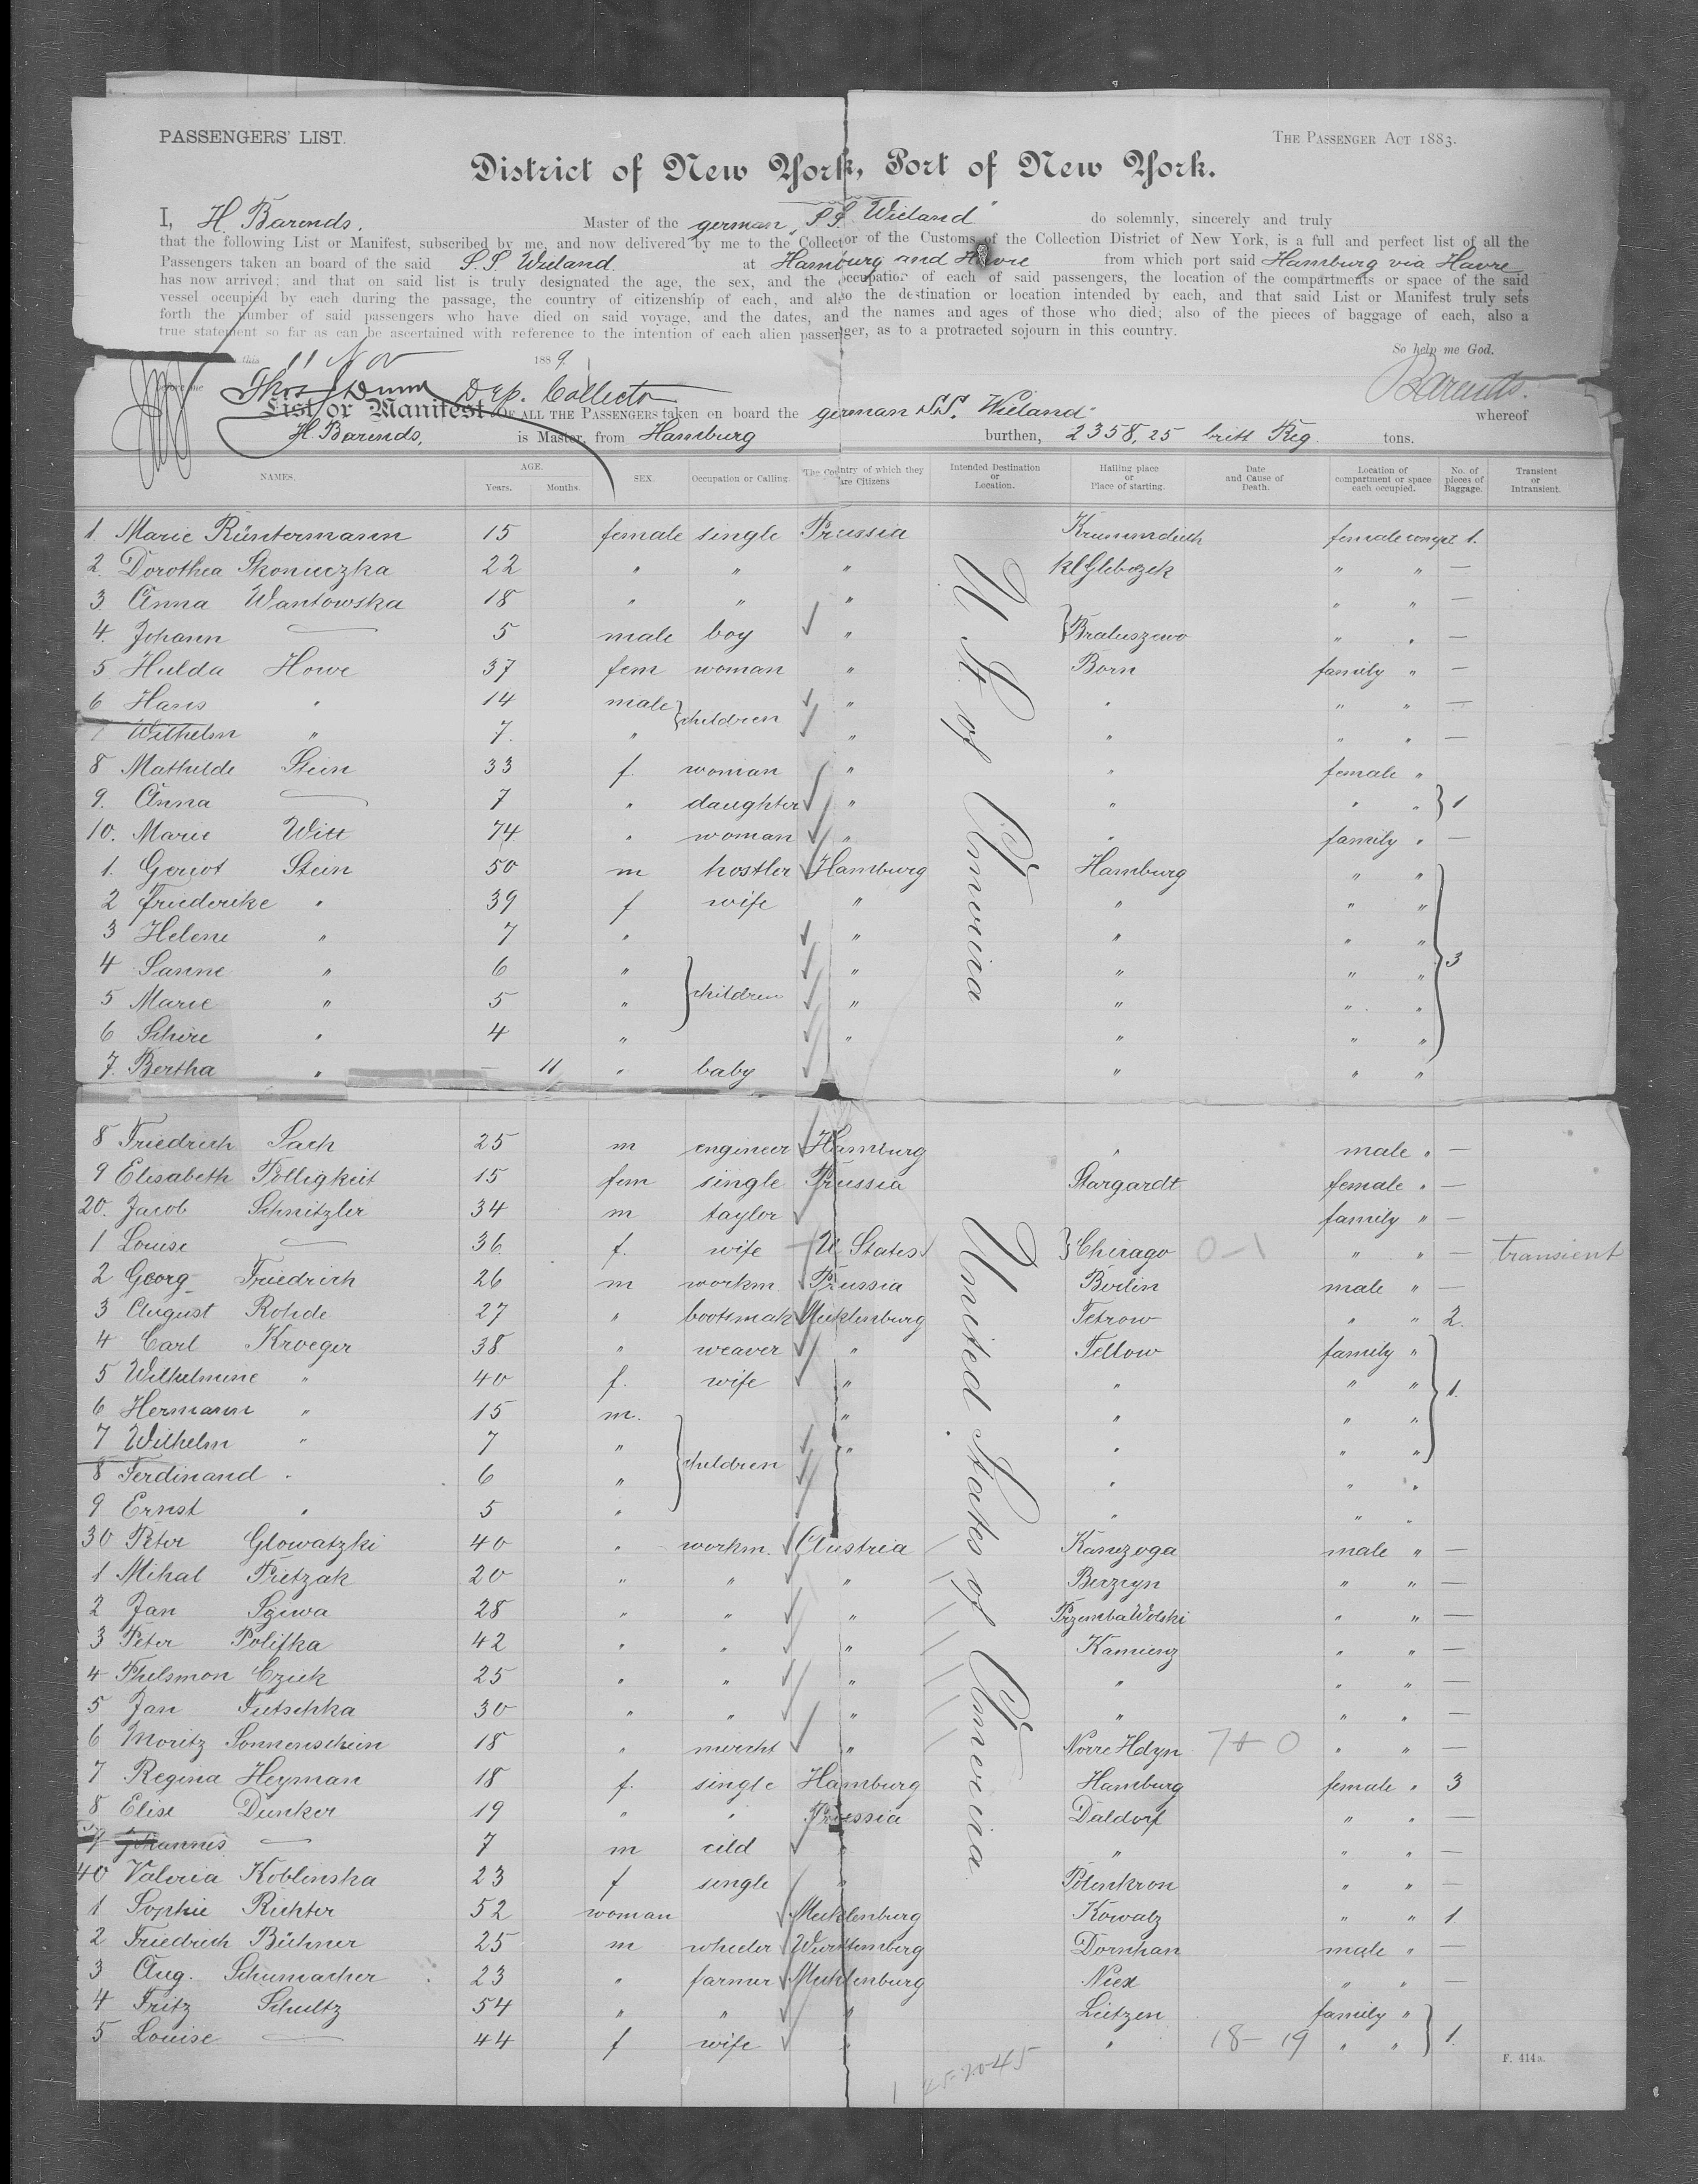 PASSENGERS' LIST.
THE PASSENGER ACT 1883.
District of New York, Port of New York.
I, H. Barends. Master of the german „S.S. Wieland" do solemnly, sincerely and truly
that the following List or Manifest, subscribed by me, and now delivered by me to the Collector of the Customs of the Collection District of New York, is a full and perfect list of all the
Passengers taken an board of the said S.S. Wieland. at Hamburg and Havre from which port said Hamburg via Havre
has now arrived; and that on said list is truly designated the age, the sex, and the occupation of each of said passengers, the location of the compartments or space of the said
vessel occupied by each during the passage, the country of citizenship of each, and also the destination or location intended by each, and that said List or Manifest truly sets
forth the number of said passengers who have died on said voyage, and the dates, and the names and ages of those who died; also of the pieces of baggage of each, also a
true statement so far as can be ascertained with reference to the intention of each alien passenger, as to a protracted sojourn in this country.
So help me God.
this 11 Nov 1889.
before me Thos Dunn Dep. Collector Barends.
List or Manifest OF ALL THE PASSENGERS taken on board the german S.S. Wieland" whereof
H. Barends, is Master, from Hamburg burthen, 2358,25 britt Reg. tons.
NAMES. AGE. Years. Months. SEX. Occupation or Calling. The Country of which they are Citizens Intended Destination or Location. Hailing place or Place of starting. Date and Cause of Death. Location of compartment or space each occupied. No. of pieces of Baggage. Transient or Intransient.
U. St. of America
1 Marie Rüntermann 15 female single Prussia Krummdieth female compt 1.
2. Dorothea Skonieczka 22 " " " kl Glebozek " " —
3. Anna Wantowska 18 " " " " " —
4. Johann — 5 male boy " Braluszewo " " —
5 Hulda Howe 37 fem woman " Born family " —
6 Hans " 14 male children " " " " —
7 Wilhelm " 7. " " " " " —
8 Mathilde Stein 33 f. woman " " female "
9. Anna — 7 " daughter " " " " 1
10. Marie Witt 74 " woman " " family " —
1. Gericot Stein 50 m hostler Hamburg Hamburg " "
2 Friederike " 39 f wife " " " "
3 Helene " 7 " " " " "
4 Sanne " 6 " children " " " " 3
5 Marie " 5 " " " " "
6 Schire " 4 " " " " "
7. Bertha " — 11 " baby " " "
8 Friedrich Sach 25 m engineer Hamburg " male " —
9 Elisabeth Polligkeit 15 fem single Prussia Stargardt female " —
20. Jacob Schnitzler 34 m taylor family " —
1 Louise — 36 f. wife U States Chicago 0-1 " " — transient
2 Georg Friedrich 26 m workm. Prussia Berlin male " —
3 August Rohde 27 " bootsmak Mecklenburg Tetrow " " 2.
4 Carl Kroeger 38 " weaver " Tellow family "
5 Wilhelmine " 40 f. wife " " " " 1.
6 Hermann " 15 m. " " " "
7 Wilhelm " 7 " children " " " "
8 Ferdinand " 6 " " " "
9 Ernst " 5 " " " "
United States of America.
30 Peter Glowatzki 40 " workm. Austria Kanizoga male " —
1 Mihal Pietzak 20 " " " Berzeyn " " —
2 Jan Sziwa 28 " " " Przemba Wolski " " —
3 Peter Polifka 42 " " " Kamienz " " —
4 Thelsmon Cziek 25 " " " " " " —
5 Jan Futschka 30 " " " " " " —
6 Moritz Sonnenschein 18 " mercht " Norre Hdyn 7+0 " " —
7 Regina Heyman 18 f. single Hamburg Hamburg female " 3
8 Elise Dunker 19 " " Prussia Daldorf " " —
9 Johannes — 7 m cild " " " " —
40 Valeria Koblenska 23 f single " Polenkron " " —
1 Sophie Richter 52 woman Mecklenburg Kowalz " " 1
2 Friedrich Bühner 25 m wheeler Wurttemberg Dornhan male " —
3 Aug. Schumacher 23 " farmer Mecklenburg Niex " " —
4 Fritz Schultz 54 " " " Lietzen family "
5 Louise — 44 f wife " " 18-19 " " 1.
F. 414a.